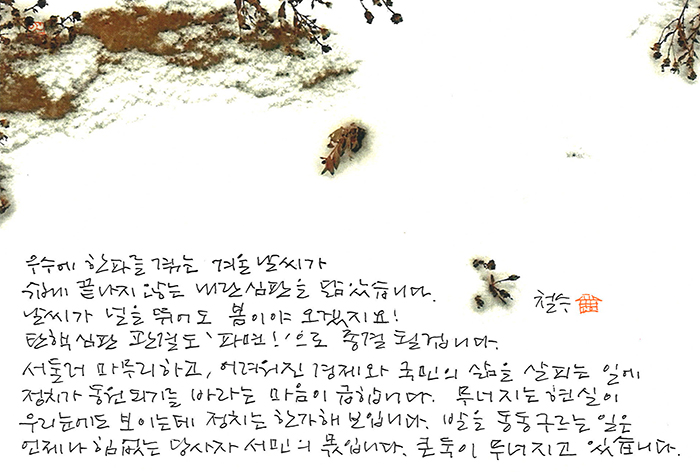 우수에 한파를 겪는 겨울 날씨가
쉬이 끝나지 않는 내란심판을 닮았습니다.
날씨가 널을 뛰어도 봄이야 오겠지요!
탄핵심판 판결도 '파면!'으로 종결 될겁니다.
서둘러 마무리하고, 어려워진 경제와 국민의 삶을 살피는 일에
정치가 동원되기를 바라는 마음이 급합니다. 무너지는 현실이
우리눈에도 보이는데 정치는 한가해 보입니다. 발을 동동구르는 일은
언제나 힘없는 당사자 서민의 몫입니다. 큰 둑이 무너지고 있습니다.
철수